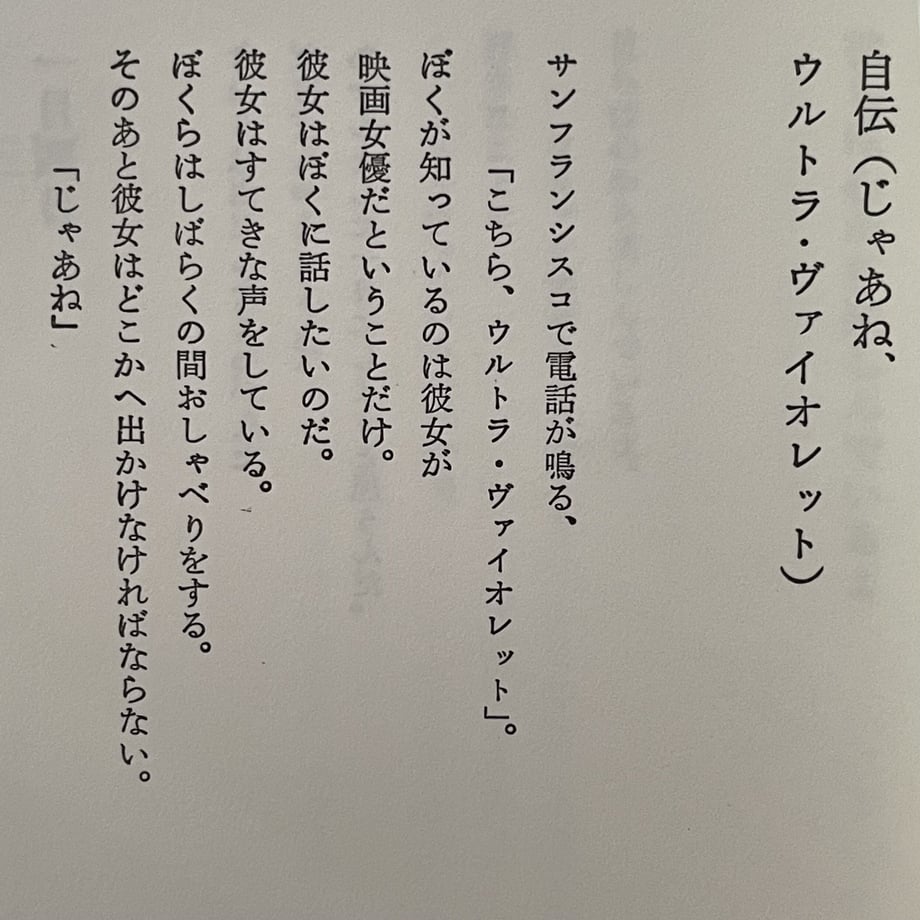 自伝（じゃあね、
ウルトラ・ヴァイオレット）
サンフランシスコで電話が鳴る、
「こちら、ウルトラ・ヴァイオレット」。
ぼくが知っているのは彼女が
映画女優だということだけ。
彼女はぼくに話したいのだ。
彼女はすてきな声をしている。
ぼくらはしばらくの間おしゃべりをする。
そのあと彼女はどこかへ出かけなければならない。
「じゃあね」